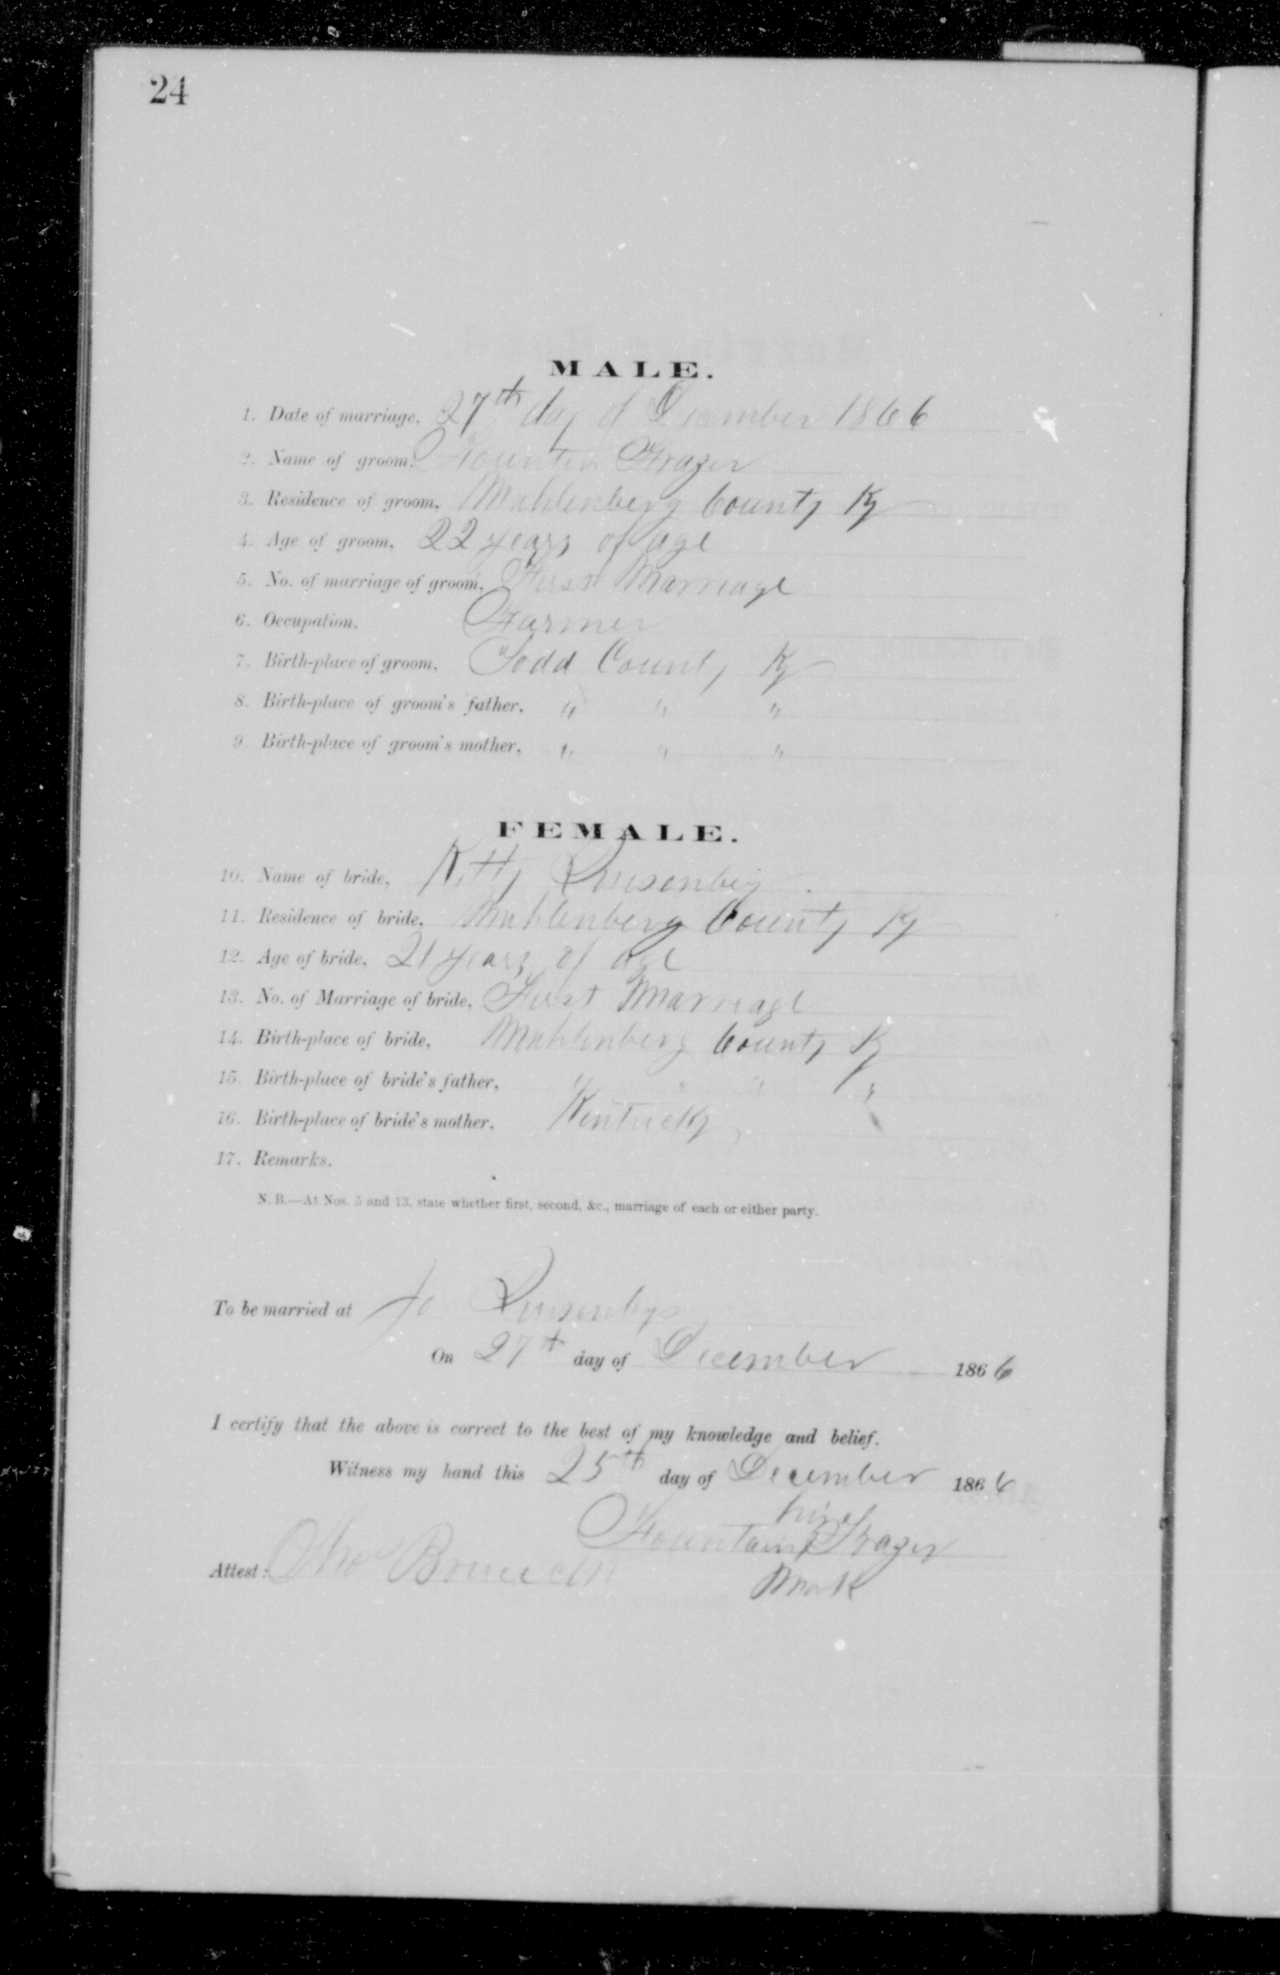 24
MALE.
1. Date of marriage, 27th day of December 1866
2. Name of groom, Fountin Frazer
3. Residence of groom, Muhlenberg County Ky
4. Age of groom, 22 years of age
5. No. of marriage of groom, First Marriage
6. Occupation, Farmer
7. Birth-place of groom, Todd County Ky
8. Birth-place of groom's father, " " "
9. Birth-place of groom's mother, " " "
FEMALE.
10. Name of bride, Kitty
11. Residence of bride, Muhlenberg County Ky
12. Age of bride, 21 years of age
13. No. of Marriage of bride, First Marriage
14. Birth-place of bride, Muhlenberg County Ky
15. Birth-place of bride's father, " " " "
16. Birth-place of bride's mother, Kentucky
17. Remarks.
N. B.—At Nos. 5 and 13, state whether first, second, &c., marriage of each or either party.
To be married at
On 27th day of December 1866
I certify that the above is correct to the best of my knowledge and belief.
Witness my hand this 25th day of December 1866
his
Fountain X Frazer
Attest:
Mark